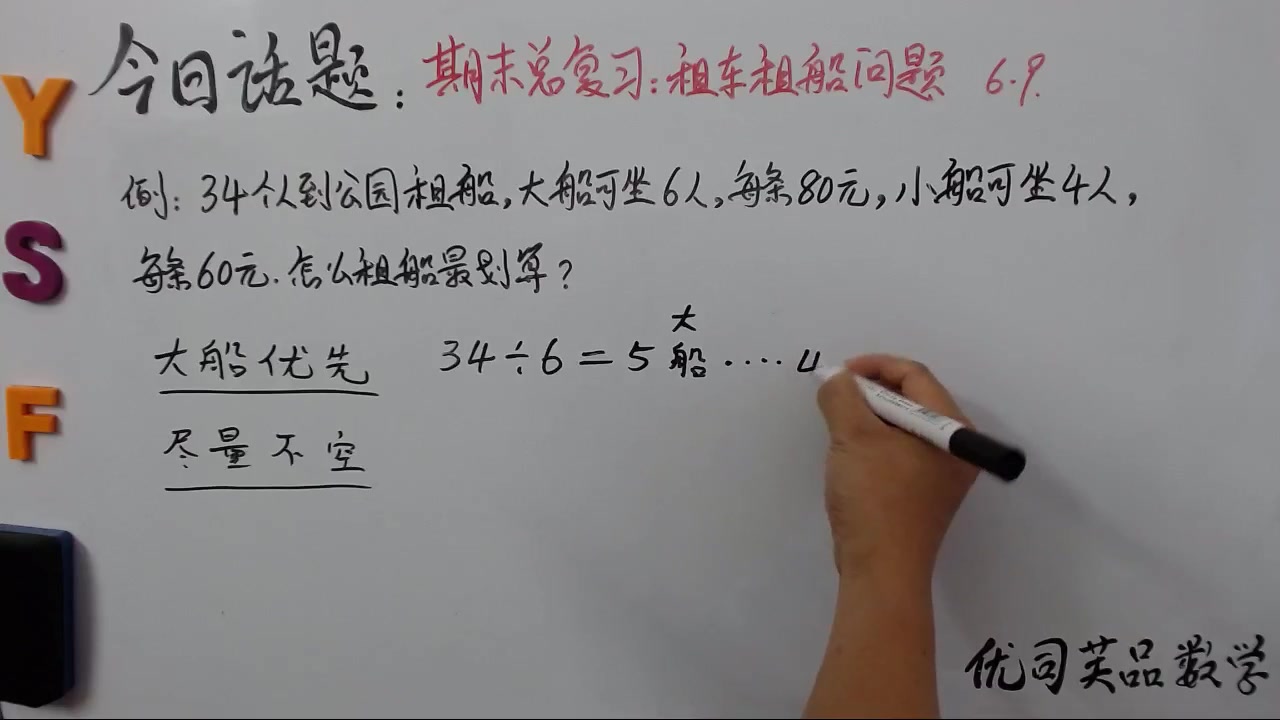 今日话题：期末总复习：租车租船问题 6.9.
例：34个人到公园租船，大船可坐6人，每条80元，小船可坐4人，
每条60元.怎么租船最划算？
大船优先 34÷6=5大船····4
尽量不空
YSF
优司芙品数学